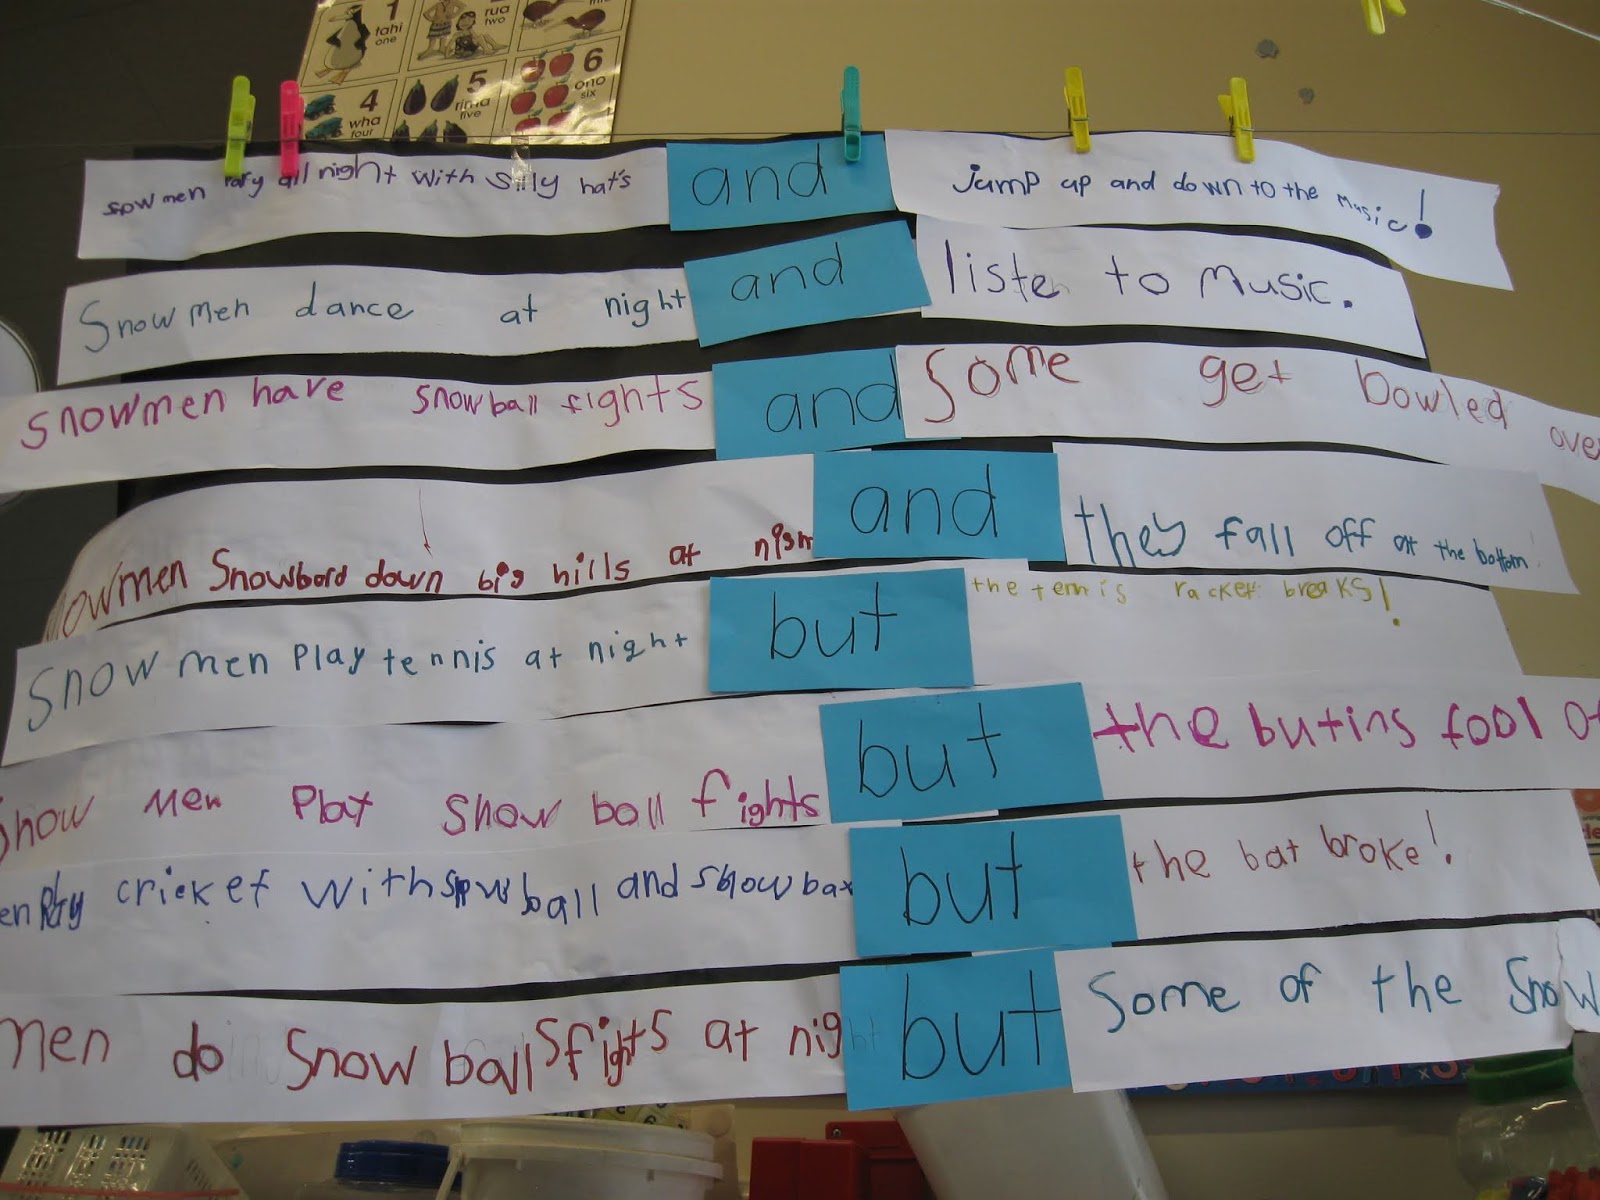 1
tahi
one
rua
two
4
wha
four
5
rima
five
6
ono
six
snowmen party all night with silly hat's and jump up and down to the music!
Snowmen dance at night and listen to music.
Snowmen have snowball fights and Some get bowled ove
nowmen Snowbord down big hills at and they fall off at the bottom!
Snowmen play tennis at night but the tennis racket breaks!
Snow men Play Snow ball fights but the butins fool of
en play cricket with snow ball and snow bat but the bat broke!.
men do Snow balls fights at nigh but Some of the Snow